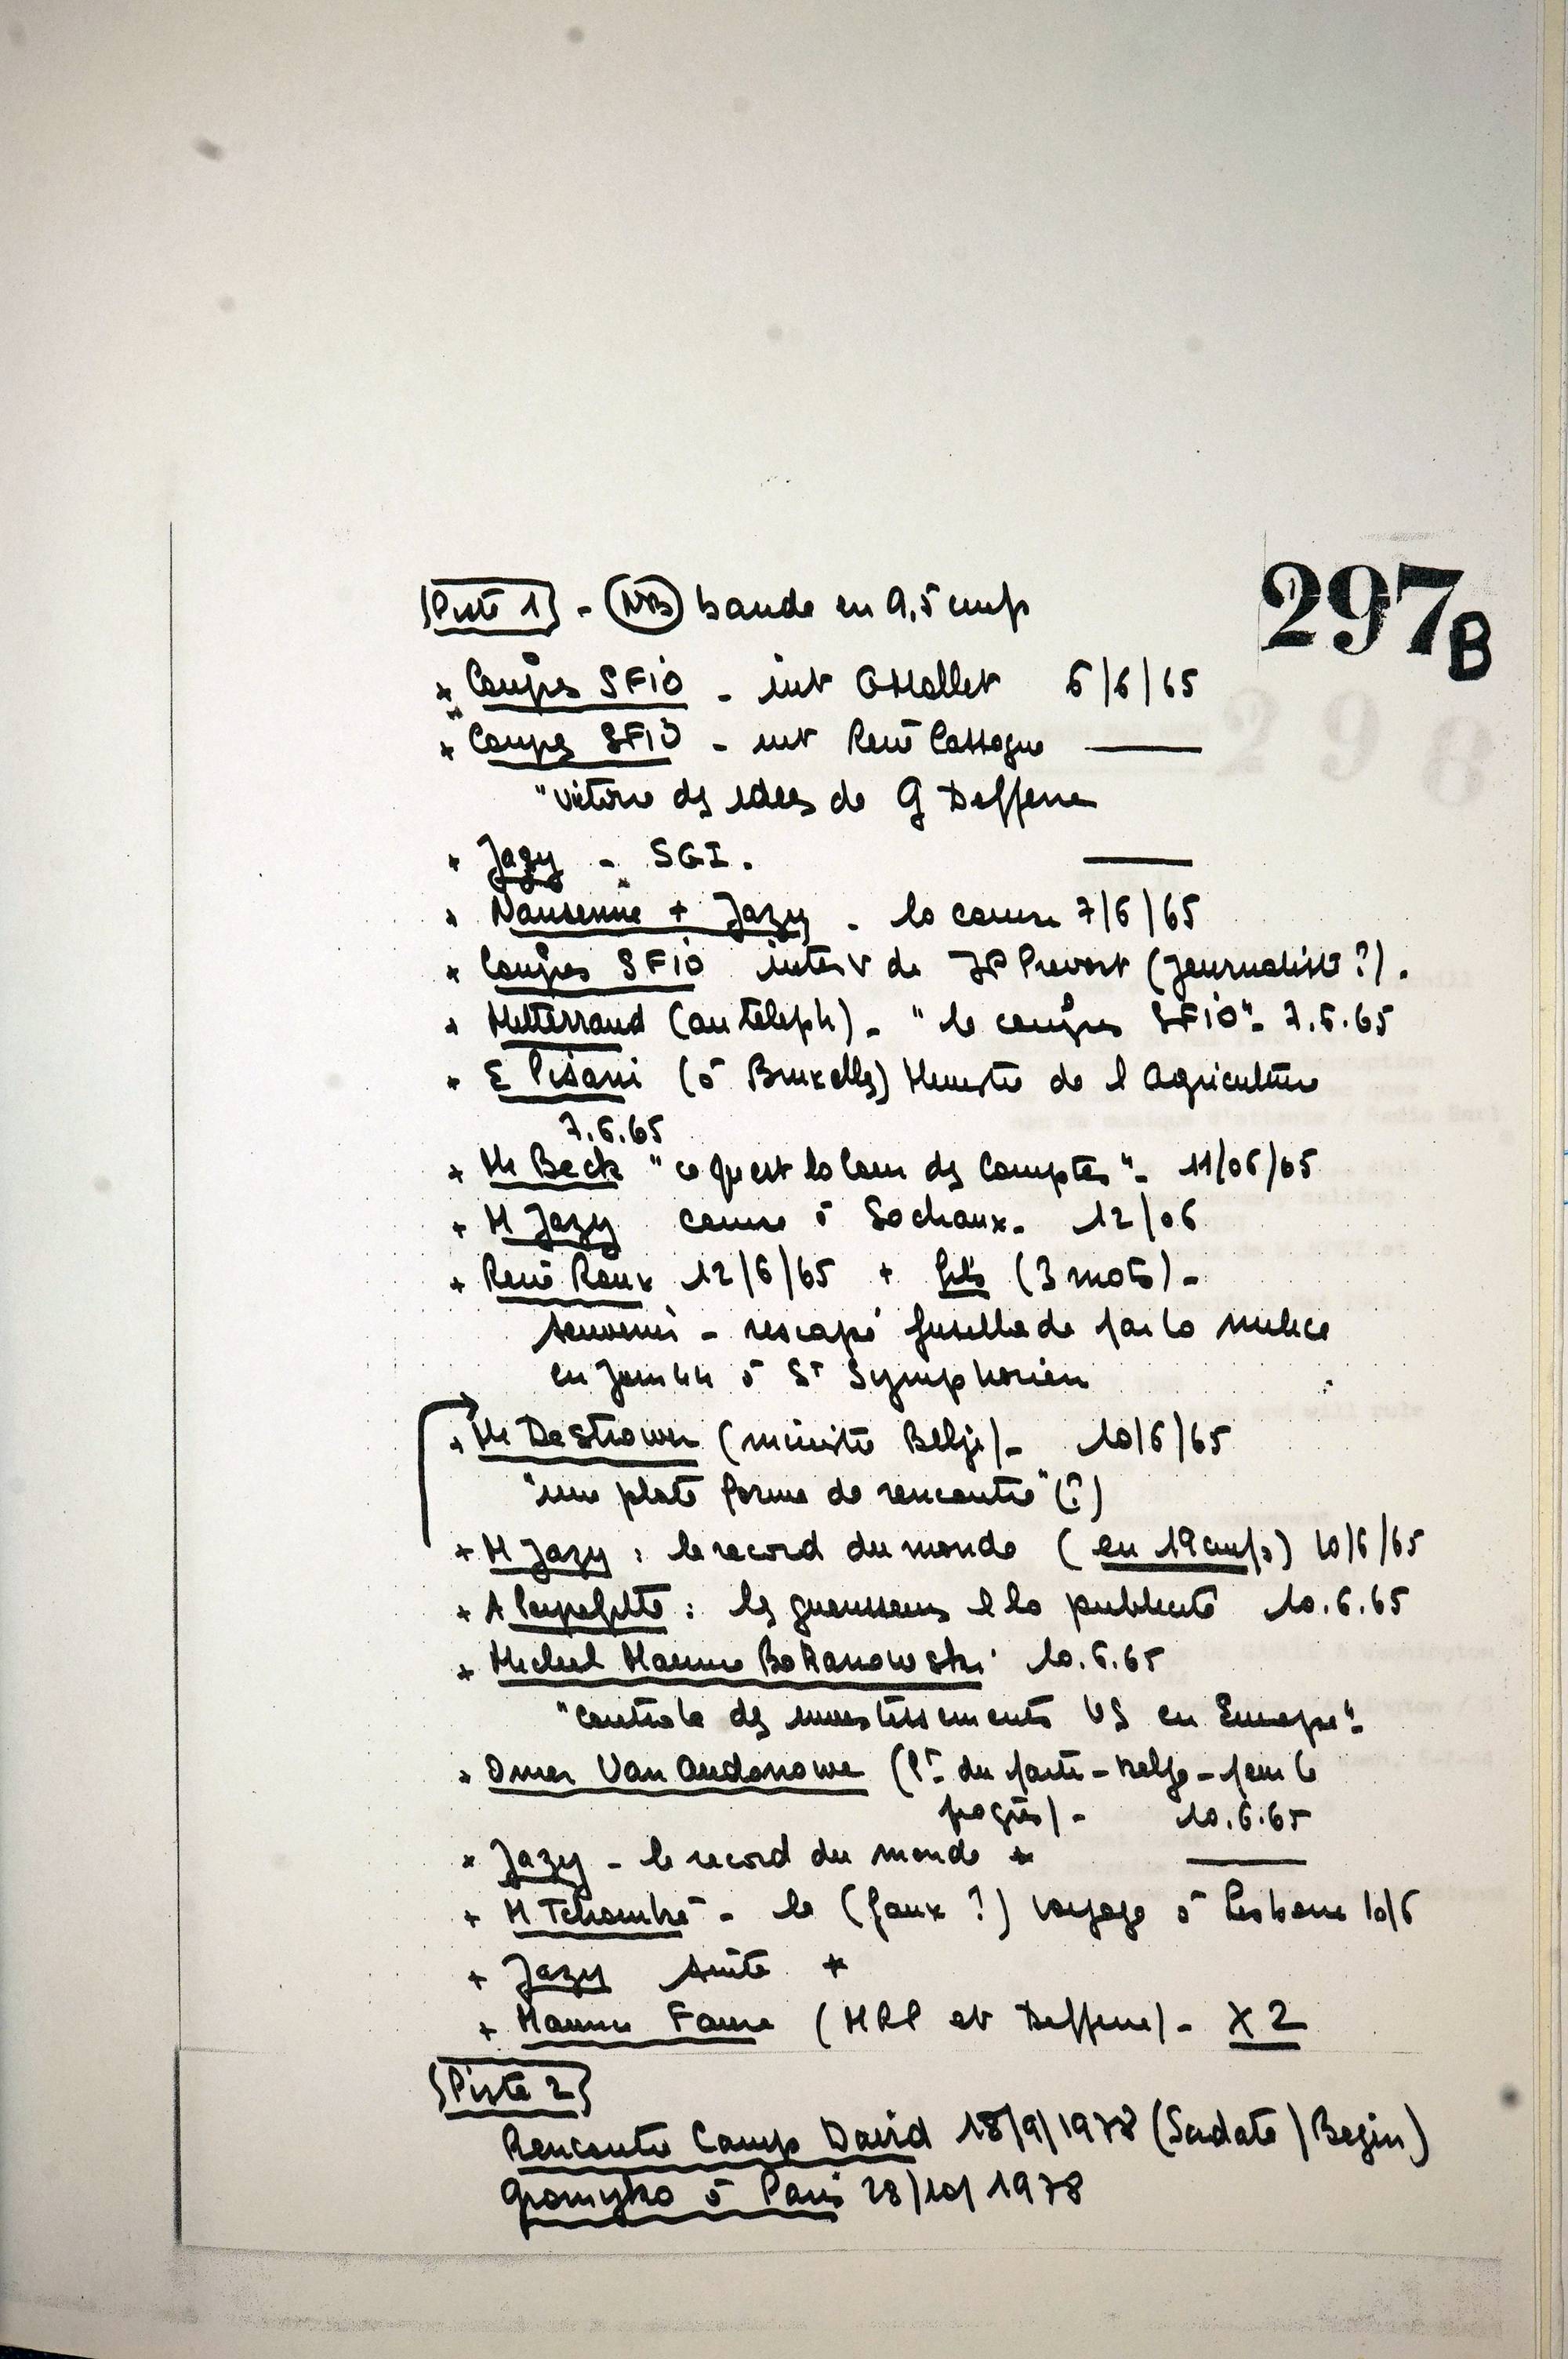 297B
Piste 1 - NB bande en 9,5 cm/s
+ Congrès SFIO - int G Mollet 6/6/65
+ Congrès SFIO - int René Cassagne ——
"victoire des idées de G Defferre
+ Jazy - SGI. ——
+ Nausenne + Jazy - la course 7/6/65
+ Congrès SFIO interv de JP Prevost (journaliste ?).
+ Mitterrand (au téléph) - "le congrès SFIO" - 7.6.65
+ E Pisani (à Bruxelles) Ministre de l Agriculture
7.6.65
+ Mr Beck "ce qu est la Cour des Comptes" - 11/06/65
+ M Jazy course à Sochaux - 12/06
+ René Roux 12/6/65 + fils (3 mots) -
souvenir - rescapé fusillade par la milice
en Juin 44 à St Symphorien
+ Mr De Strower (ministre Belge) - 10/6/65
"une plate forme de rencontre" (?)
+ M Jazy : le record du monde (en 19 cm/s) 10/6/65
+ A Peyrefitte : les annonceurs & la publicité 10.6.65
+ Michel Maurice Bokanowski 10.6.65
"contrôle des investissements US en Europe" -
+ Omer Van Audenhove (Pt du parti - belge - pour le
progrès) - 10.6.65
+ Jazy - le record du monde * ——
+ M Tchombé - le (faux ?) voyage à Lisbonne 10/6
+ Jazy suite *
+ Maurice Faure (MRP et Defferre) - X 2
Piste 2
Rencontre Camp David 18/9/1978 (Sadate / Begin)
Gromyko à Paris 28/10/1978